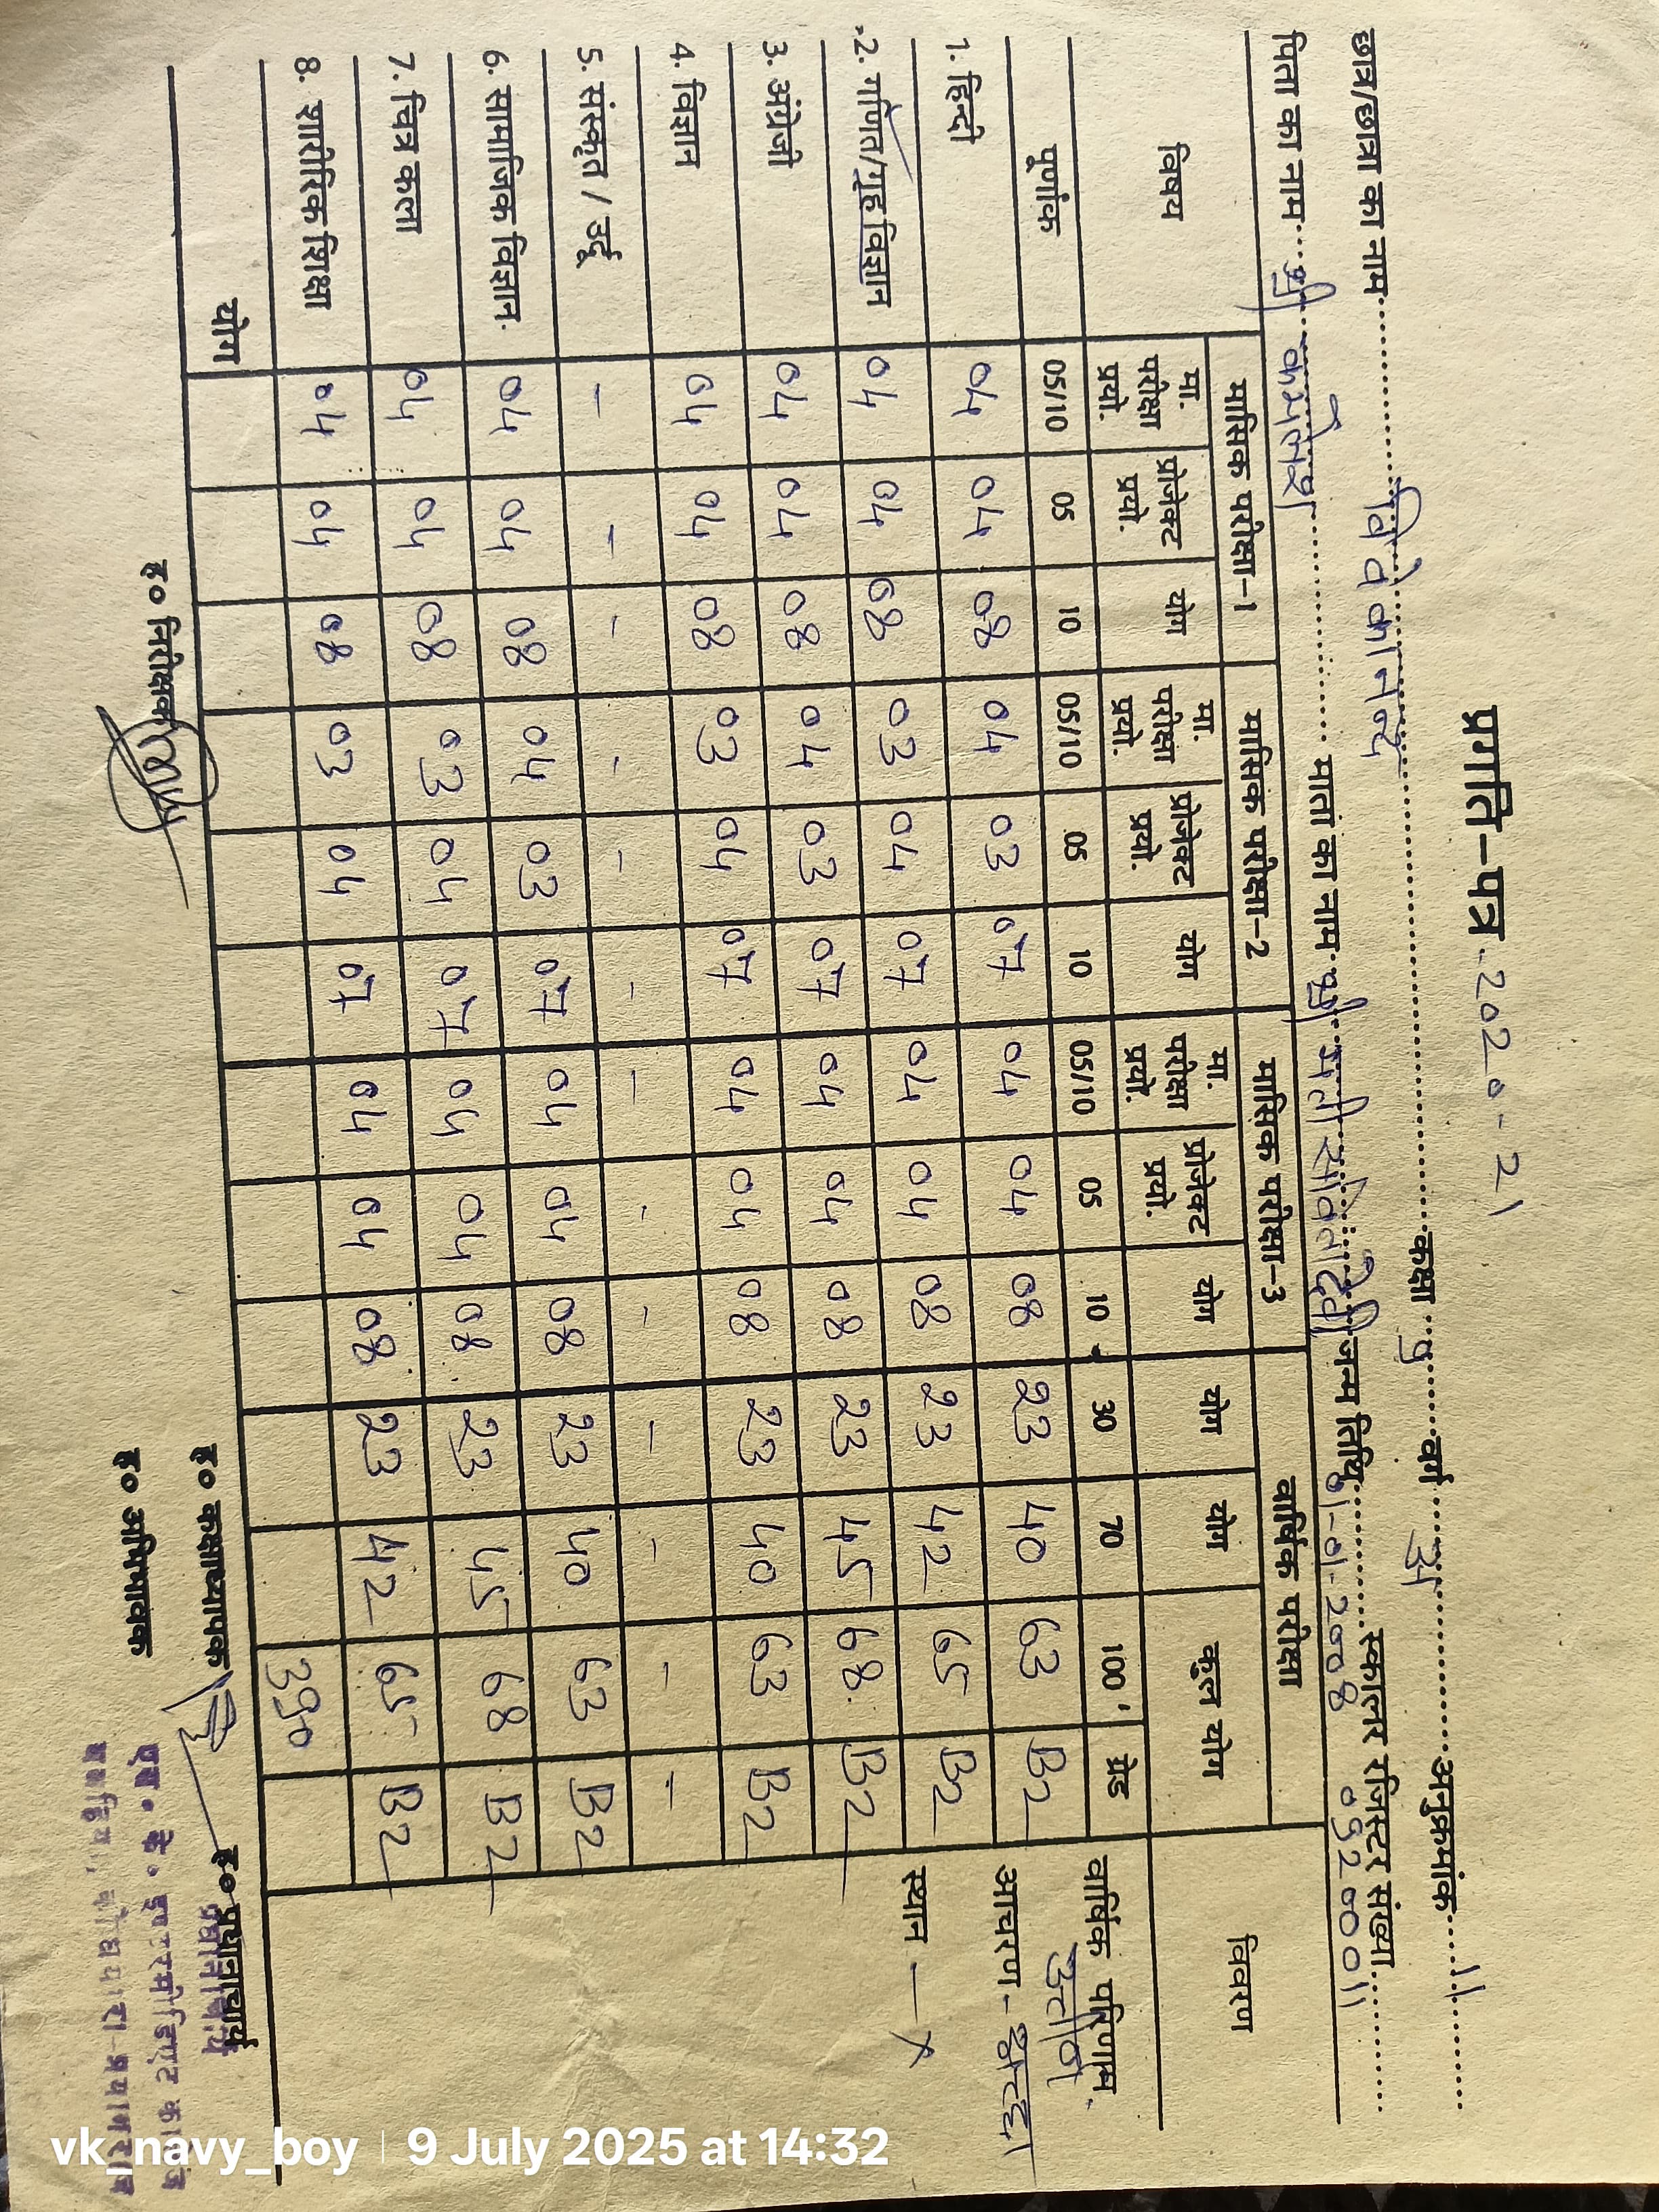 प्रगति-पत्र. 2020-21
छात्र/छात्रा का नाम विवेकानन्द कक्षा 9 वर्ग अ अनुक्रमांक 11
पिता का नाम श्री कमलेश माता का नाम श्री मती सविता देवी जन्म तिथि 01-01-2008 स्कालर रजिस्टर संख्या 0920011
विषय मासिक परीक्षा-1 मासिक परीक्षा-2 मासिक परीक्षा-3 वार्षिक परीक्षा विवरण
मा. परीक्षा प्रयो. प्रोजेक्ट प्रयो. योग मा. परीक्षा प्रयो. प्रोजेक्ट प्रयो. योग मा. परीक्षा प्रयो. प्रोजेक्ट प्रयो. योग योग योग कुल योग
पूर्णांक 05/10 05 10 05/10 05 10 05/10 05 10 30 70 100 ग्रेड वार्षिक परिणाम उत्तीर्ण
1. हिन्दी 04 04 08 04 03 07 04 04 08 23 40 63 B2 आचरण - अच्छा
2. गणित/गृह विज्ञान 04 04 08 03 04 07 04 04 08 23 42 65 B2 स्थान — x
3. अंग्रेजी 04 04 08 04 03 07 04 04 08 23 45 68 B2
4. विज्ञान 04 04 08 03 04 07 04 04 08 23 40 63 B2
5. संस्कृत / उर्दू - - - - - - - - - - - - -
6. सामाजिक विज्ञान. 04 04 08 04 03 07 04 04 08 23 40 63 B2
7. चित्र कला 04 04 08 03 04 07 04 04 08 23 45 68 B2
8. शारीरिक शिक्षा 04 04 08 03 04 07 04 04 08 23 42 65 B2
योग 390
ह० निरीक्षक ह० कक्षाध्यापक ह० प्रधानाचार्य
प्रधानाचार्य
ह० अभिभावक एस. के. इण्टरमीडिएट कालेज
vk_navy_boy | 9 July 2025 at 14:32